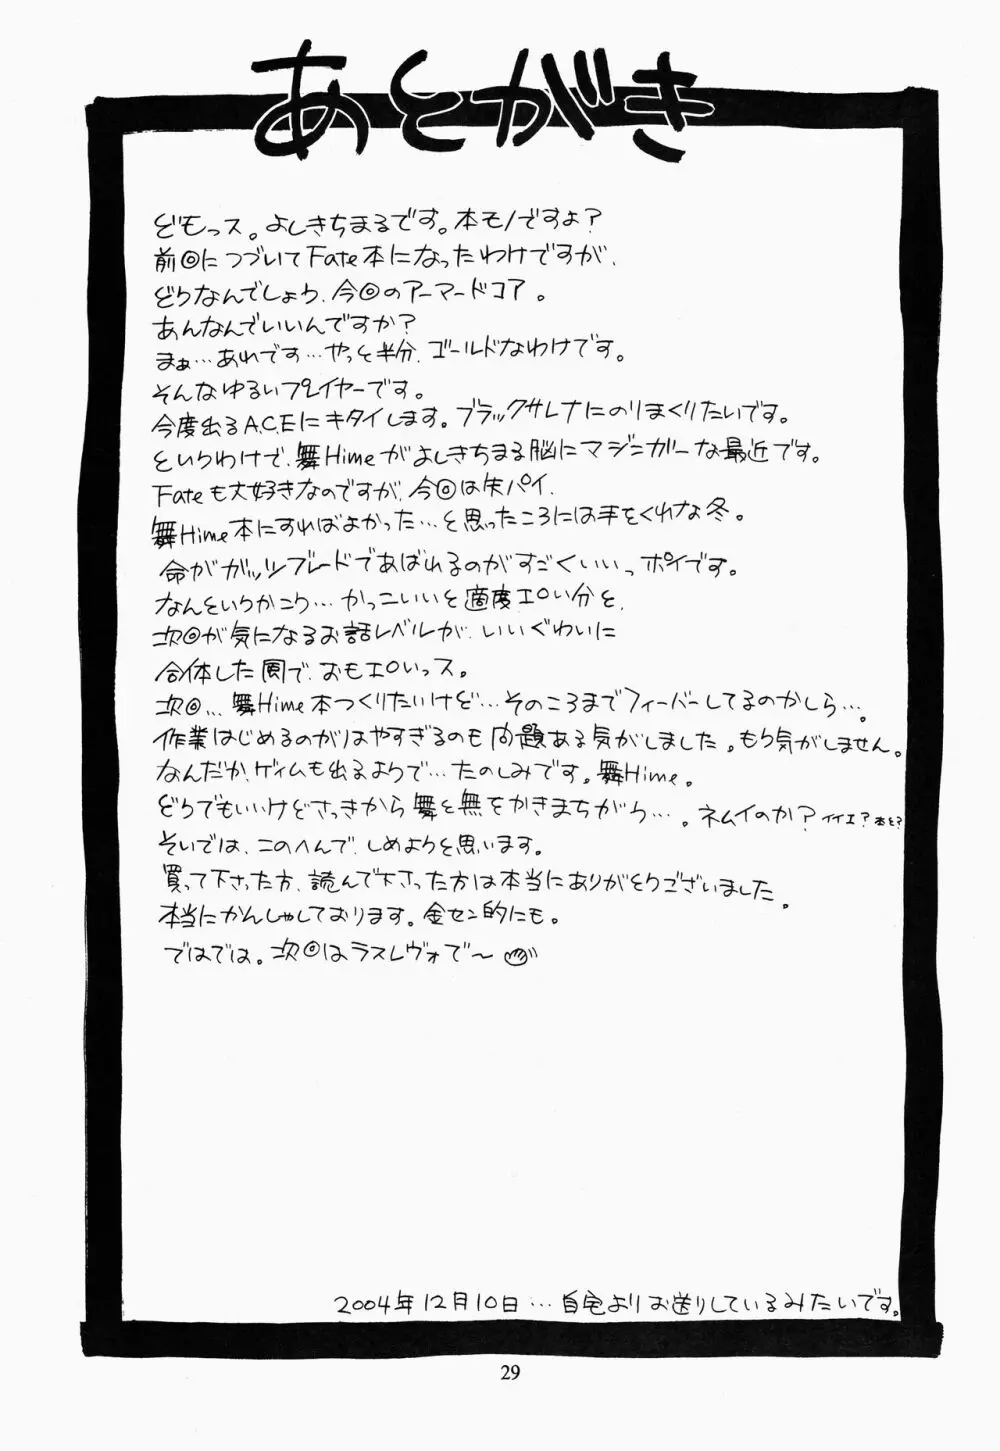 あとがき
どもっス。よしきちまるです。本モノですょ？
前回につづいてFate本になったわけですが、
どうなんでしょう、今回のアーマードコア。
あんなんでいいんですか？
まぁ…あれです…やっと半分、ゴールドなわけです。
そんなゆるいプレイヤーです。
今度出るA.C.Eにキタイします。ブラックサレナにのりまくりたいです。
というわけで、舞Himeがよしきちまる脳にマジニガーな最近です。
Fateも大好きなのですが、今回は失パイ、
舞Hime本にすればよかった…と思ったころには手をくれな冬。
命がガッツブレードであばれるのがすごくいいっポイです。
なんというかこう…かっこいいと適度エロい分と、
次回が気になるお話レベルが、いいぐわいに
合体した風で、おもエロいっス。
次回…舞Hime本つくりたいけど…そのころまでフィーバーしてるのかしら…。
作業はじめるのがはやすぎるのも問題ある気がしました。もう気がしません。
なんだか、ゲイムも出るようで…たのしみです。舞Hime。
どうでもいいけどさっきから舞と無をかきまちがう…。ネムイのか？イイエ？本と？
そいでは、このへんで、しめようと思います。
買って下さった方、読んで下さった方は本当にありがとうございました。
本当にかんしゃしております。金セン的にも。
ではでは。次回はラスレヴォで〜
2004年12月10日…自宅よりお送りしているみたいです。
29